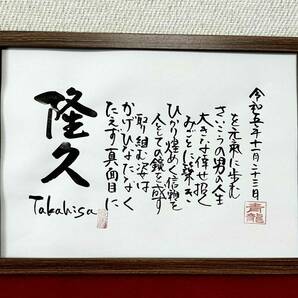 隆久
Takahisa
たえず真面目に
かげひなたなく
取り組む姿は
人としての鏡を成す
ひかり煌めく
みごとに築き
大きな倖せ招く
さいこうの男の人生
を元気に歩む
令和五年十一月二十三日
青龍